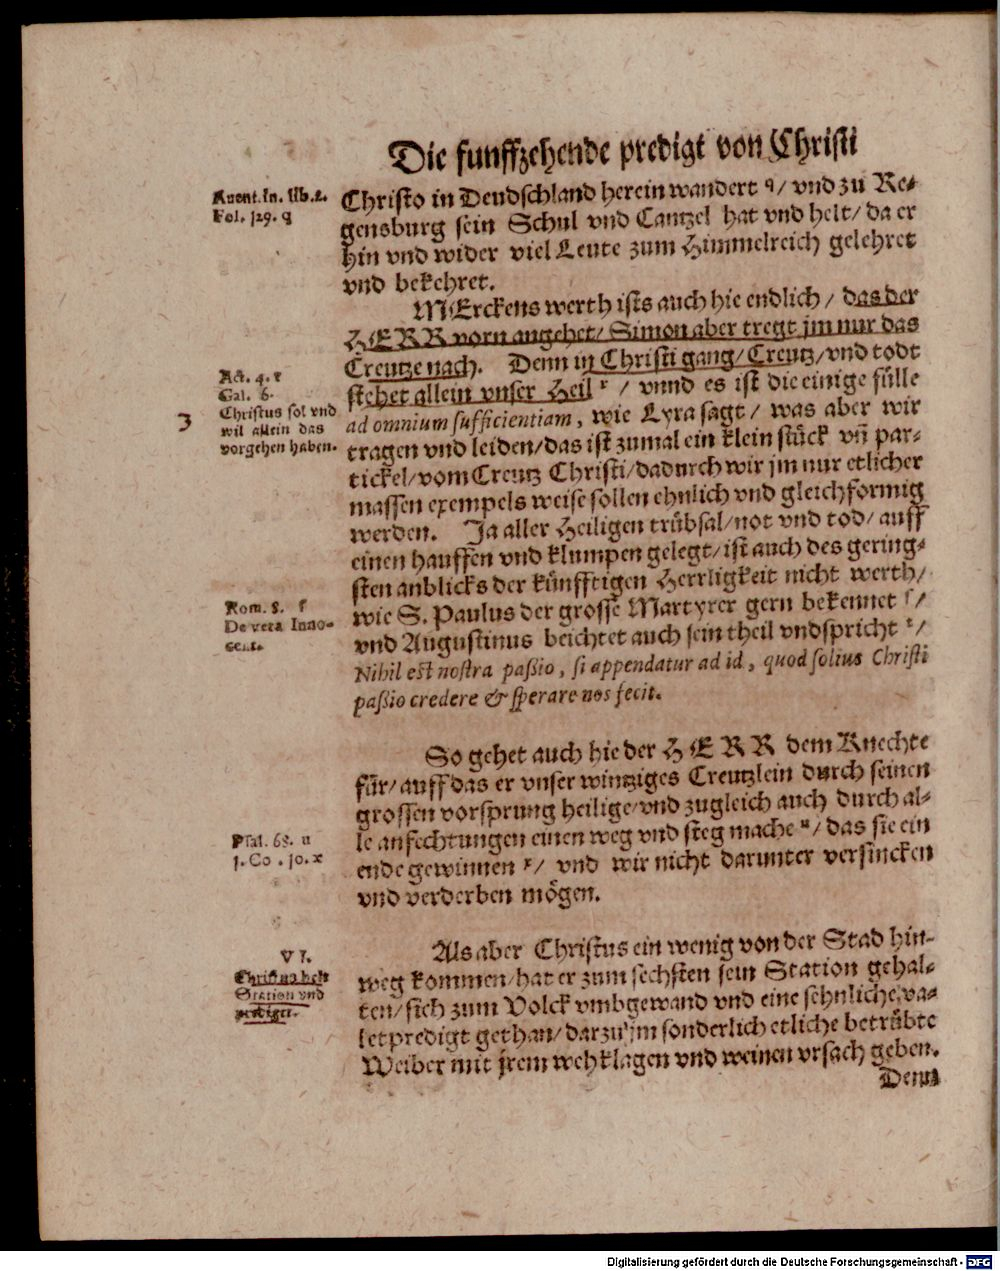 Die funffzehende predigt von Christi
Auent. in. lib. 2.
Fol. 129. q
Christo in Deudschland herein wandert q/ vnd zu Re⸗
gensburg sein Schul vnd Cantzel hat vnd helt/ da er
hin vnd wider viel Leute zum Himmelreich gelehret
vnd bekehret.
MErckens werth ists auch hie endlich / das der
HERR vorn angehet/ Simon aber tregt jm nur das
Creutze nach. Denn in Christi gang/ Creutz/ vnd todt
stehet allein vnser Heil r / vnnd es ist die einige fülle
ad omnium sufficientiam, wie Lyra sagt/ was aber wir
tragen vnd leiden/ das ist zumal ein klein stück vñ par⸗
tickel/ vom Creutz Christi/ dadurch wir jm nur etlicher
massen exempels weise sollen ehnlich vnd gleichformig
werden. Ja aller Heiligen trübsal/ not vnd tod/ auff
einen hauffen vnd klumpen gelegt/ ist auch des gering⸗
sten anblicks der künfftigen Herrligkeit nicht werth/
wie S. Paulus der grosse Martyrer gern bekennet ſ/
vnd Augustinus beichtet auch sein theil vnd spricht t/
Nihil est nostra paßio, si appendatur ad id, quod solius Christi
paßio credere & sperare nos fecit.
Act. 4. r
Gal. 6.
3
Christus sol vnd
wil allein das
vorgehen haben.
Rom. 8. ſ
De vera Inno-
cent.
So gehet auch hie der HERR dem Knechte
für/ auff das er vnser wintziges Creutzlein durch seinen
grossen vorsprung heilige/ vnd zugleich auch durch al⸗
le anfechtungen einen weg vnd steg mache u/ das sie ein
ende gewinnen x/ vnd wir nicht darunter versincken
vnd verderben mögen.
Psal. 68. u
1. Co . 10. x
Als aber Christus ein wenig von der Stad hin⸗
weg kommen/ hat er zum sechsten sein Station gehal⸗
ten/ sich zum Volck vmbgewand vnd eine sehnliche va⸗
letpredigt gethan/ darzu jm sonderlich etliche betrübte
Weiber mit jrem wehklagen vnd weinen vrsach geben.
VI.
Christus helt
Station vnd
prediget.
Denn
Digitalisierung gefördert durch die Deutsche Forschungsgemeinschaft - DFG